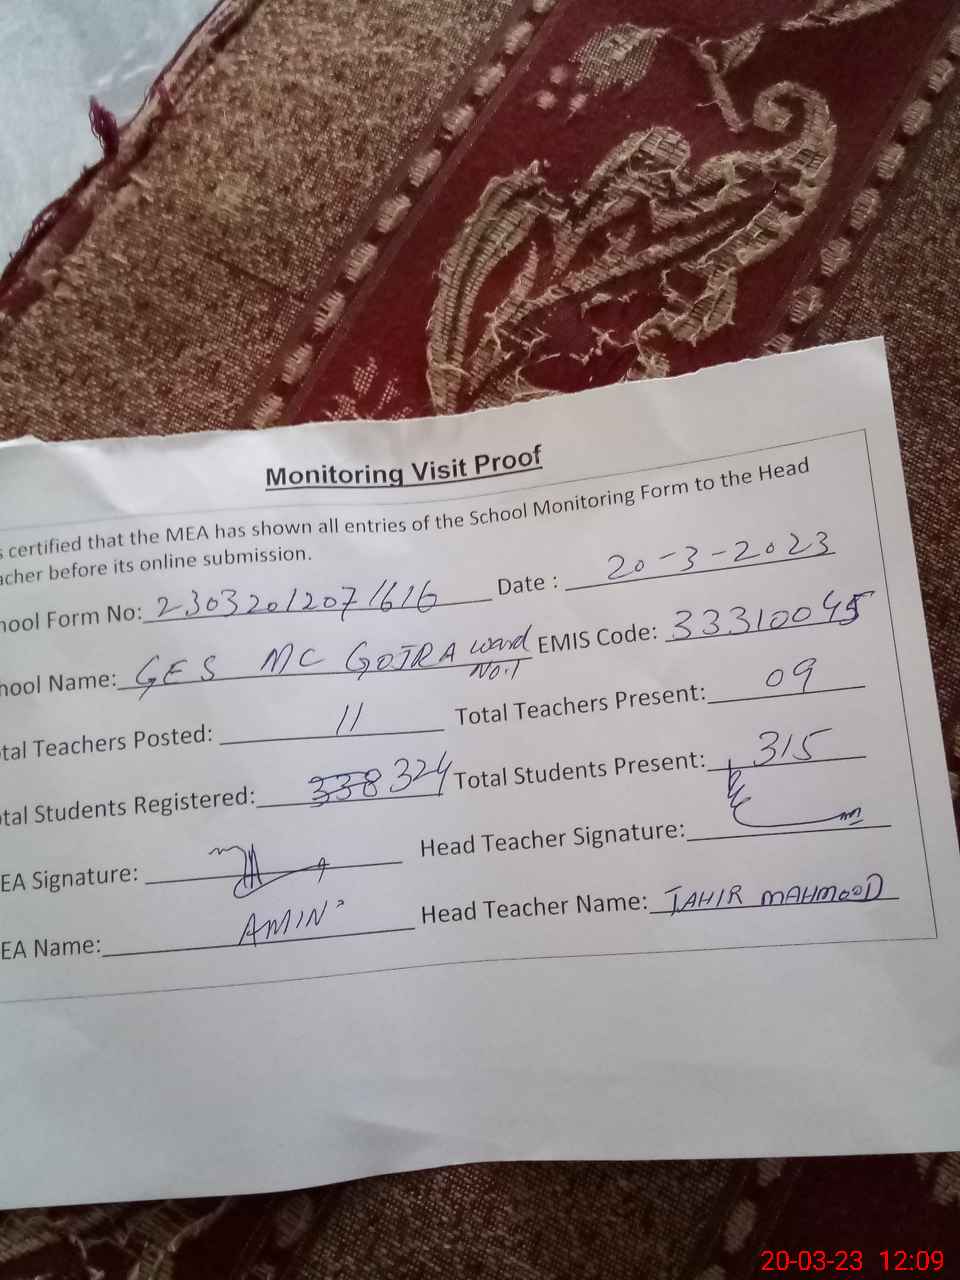 Monitoring Visit Proof
s certified that the MEA has shown all entries of the School Monitoring Form to the Head
acher before its online submission.
hool Form No: 23032012071616 Date : 20-3-2023
hool Name: GES MC GOJRA ward No.1 EMIS Code: 33310045
tal Teachers Posted: 11 Total Teachers Present: 09
tal Students Registered: 338 324 Total Students Present: 315
EA Signature: Head Teacher Signature:
EA Name: AMIN Head Teacher Name: TAHIR MAHMOOD
20-03-23 12:09